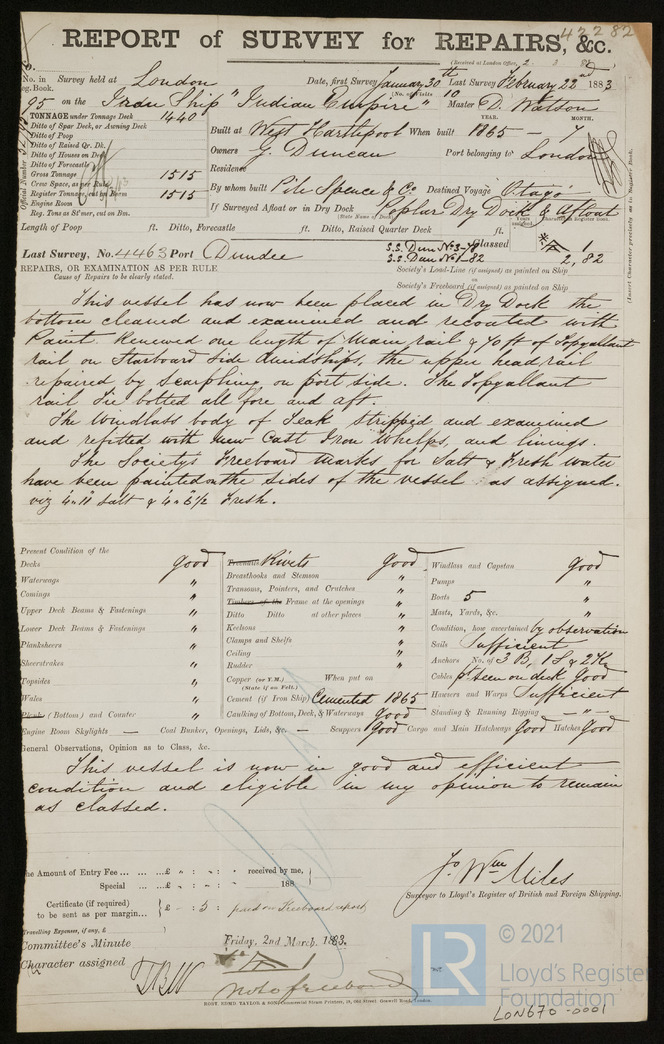 42282
REPORT of SURVEY for REPAIRS, &c.
(Received at London Office, 2. 3. 83
No. in Survey held at London Date, first Survey January 30th Last Survey February 22nd 1883
Reg. Book. (No. of Visits 10
95 on the Iron Ship "Indian Empire" Master D. Watson
TONNAGE under Tonnage Deck 1440
YEAR. MONTH.
Ditto of Spar Deck, or Awning Deck
Ditto of Poop
Built at West Hartlepool When built 1865 - 7
Ditto of Raised Qr. Dk.
Ditto of Houses on Deck
Owners G. Duncan Port belonging to London
Ditto of Forecastle
Gross Tonnage 1515
Residence
Crew Space, as per Rule
By whom built Pile Spence & Co Destined Voyage Otago
Register Tonnage, cut on Beam 1515
Engine Room
If Surveyed Afloat or in Dry Dock Poplar Dry Dock & Afloat
(State Name of Dock)
Reg. Tons as St'mer, cut on Bm.
Length of Poop ft. Ditto, Forecastle ft. Ditto, Raised Quarter Deck ft.
Official Number
(Insert Character precisely as in Register Book.
Years assigned Character in Register Book.
Last Survey, No. 4463 Port Dundee
S.S. Dun No 3-78 Classed A 1
S.S. Dun No 1-82 2,82
REPAIRS, OR EXAMINATION AS PER RULE
Cause of Repairs to be clearly stated.
Society's Load-Line (if assigned) as painted on Ship
Society's Freeboard (if assigned) as painted on Ship
This vessel has now been placed in Dry Dock the
bottom cleaned and examined and recoated with
Paint. Renewed one length of Main rail & 70 ft of Topgallant
rail on Starboard side amidships, the upper head rail
repaired by scarphing on port side. The Topgallant
rail Tie bolted all fore and aft.
The Windlass body of Teak stripped and examined
and refitted with new Cast Iron Whelps, and linings.
The Society's Freeboard Marks for Salt & Fresh water
have been painted on the sides of the vessel as assigned.
viz 4'n 11 Salt & 4'n 5½ Fresh.
Present Condition of the
Decks Good
Waterways "
Comings "
Upper Deck Beams & Fastenings "
Lower Deck Beams & Fastenings "
Planksheers "
Sheerstrakes "
Topsides "
Wales "
Plank (Bottom) and Counter "
Engine Room Skylights —
Treenails Rivets Good
Breasthooks and Stemson "
Transoms, Pointers, and Crutches "
Timbers of the Frame at the openings "
Ditto Ditto at other places "
Keelsons "
Clamps and Shelfs "
Ceiling "
Rudder "
Copper (or Y.M.) When put on
(State if on Felt.)
Cement (if Iron Ship) Cemented 1865
Caulking of Bottom, Deck, & Waterways good
Coal Bunker, Openings, Lids, &c. — Scuppers Good Cargo and Main Hatchways Good Hatches Good
Windlass and Capstan Good
Pumps "
Boats 5 "
Masts, Yards, &c. "
Condition, how ascertained by observation
Sails Sufficient
Anchors No. of 3 B, 1 S, & 2 K
Cables pt seen on deck Good
Hawsers and Warps Sufficient
Standing & Running Rigging — " —
General Observations, Opinion as to Class, &c.
This vessel is now in good and efficient
condition and eligible in my opinion to remain
as classed.
The Amount of Entry Fee ... ... ... £ " : " : " received by me,
Special ... ... £ " : " : " 188
Certificate (if required)
to be sent as per margin... £ " : 5 : " paid on Freeboard report
Travelling Expenses, if any, £
Jo Wm Miles
Surveyor to Lloyd's Register of British and Foreign Shipping.
Committee's Minute Friday, 2nd March, 1883.
Character assigned A 1
TBW note freeboard
ROBT. EDMD. TAYLOR & SON, Commercial Steam Printers, 19, Old Street, Goswell Road, London.
LR © 2021
Lloyd's Register
Foundation
LON670-0001